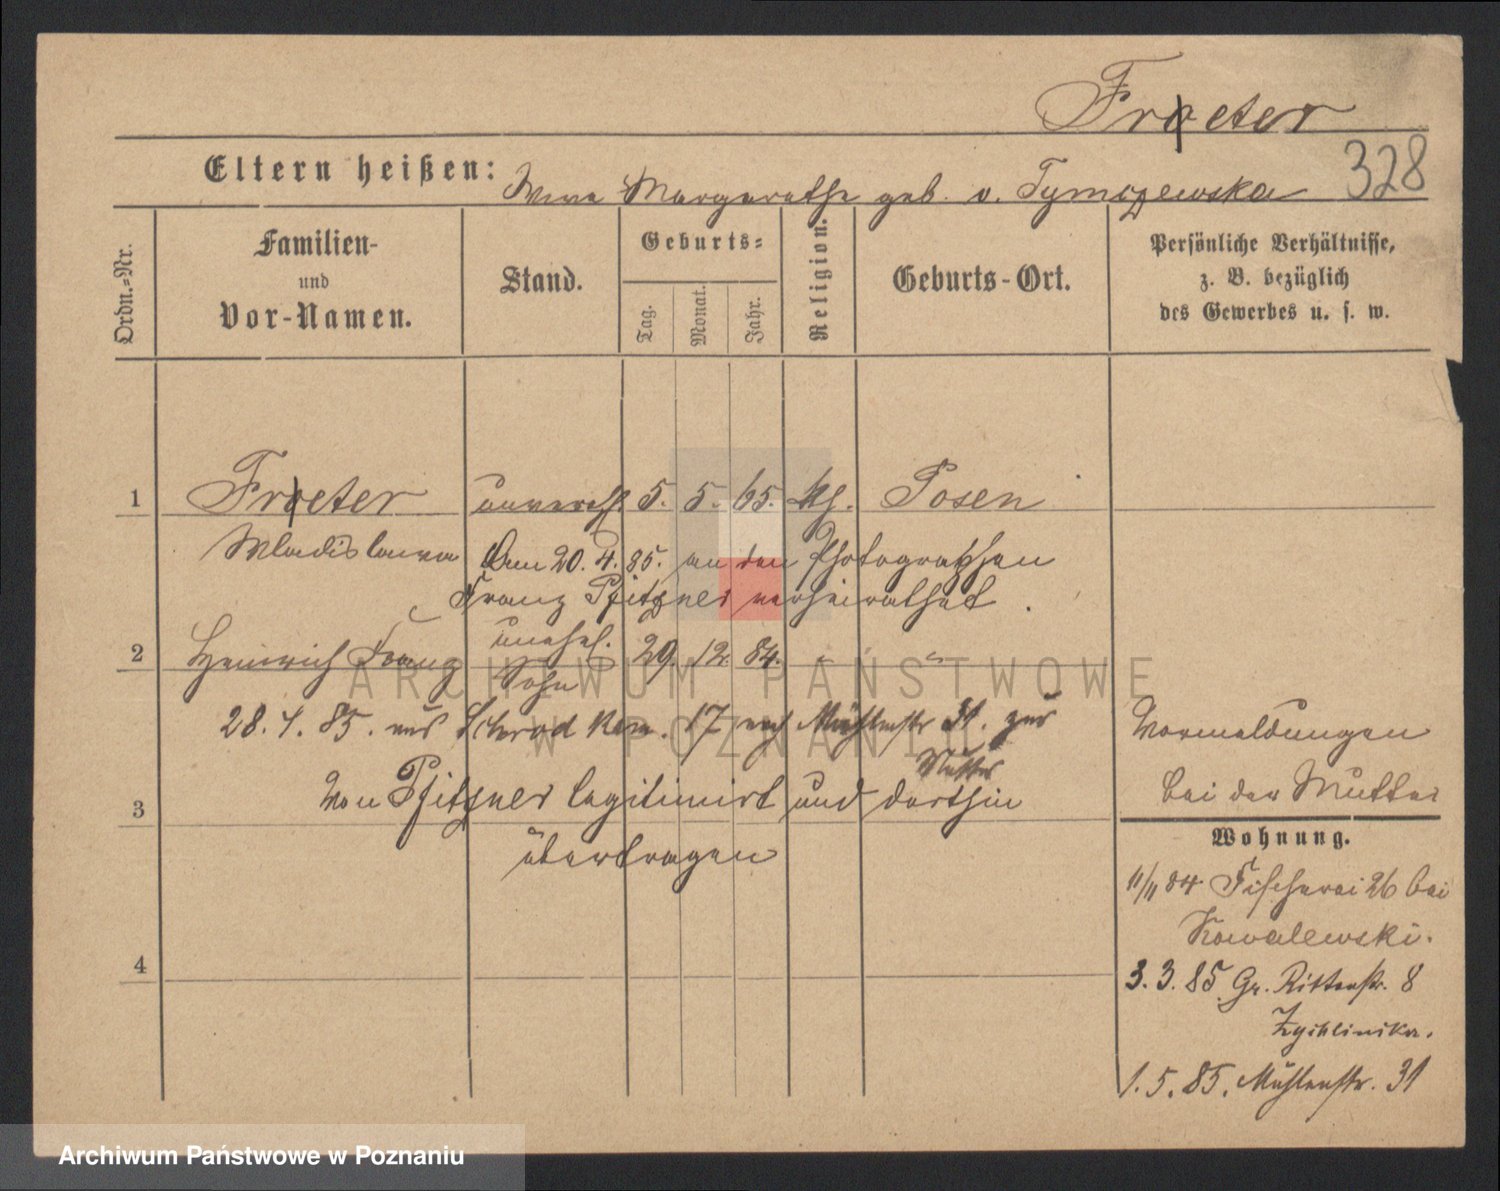 Froeter
328
Eltern heißen:
Wwe Margarethe geb. v. Tymizewska
Ordn.-Nr.
Familien-
und
Vor-Namen.
Stand.
Geburts-
Tag.
Monat.
Jahr.
Religion.
Geburts-Ort.
Persönliche Verhältnisse,
z. B. bezüglich
des Gewerbes u. s. w.
1
Froeter unvereh. 5. 5. 65. kth. Posen
Wladislawa
Am 20. 4. 85. an den Photographen
Franz Pfitzner verheirathet.
2
Heinrich Franz unehel. 29. 12. 84.
Sohn
28. 4. 85. aus Schrod 17 nach Mühlenstr 31. zur
Mutter
3
Von Pfitzner legitimirt und dorthin
übertragen
4
Vormeldungen
bei der Mutter
Wohnung.
11/11 84. Fischerei 26 bei
Kowalewski.
3. 3. 85 Gr. Ritterstr. 8
Zychlinska.
1. 5. 85. Mühlenstr. 31
ARCHIWUM PAŃSTWOWE
W POZNANIU
Archiwum Państwowe w Poznaniu